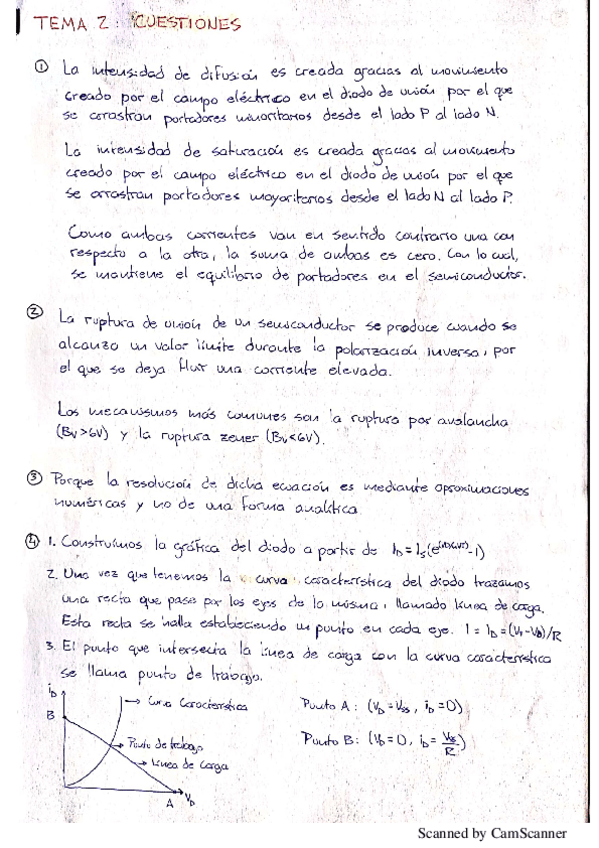 TEMA 2: CUESTIONES
① La intensidad de difusión es creada gracias al movimiento
creado por el campo eléctrico en el diodo de unión por el que
se arrastran portadores minoritarios desde el lado P al lado N.
La intensidad de saturación es creada gracias al movimiento
creado por el campo eléctrico en el diodo de unión por el que
se arrastran portadores mayoritarios desde el lado N al lado P.
Como ambas corrientes van en sentido contrario una con
respecto a la otra, la suma de ambas es cero. Con lo cual,
se mantiene el equilibrio de portadores en el semiconductor.
② La ruptura de unión de un semiconductor se produce cuando se
alcanza un valor límite durante la polarización inversa, por
el que se deja fluir una corriente elevada.
Los mecanismos más comunes son la ruptura por avalancha
(Bv>6V) y la ruptura zener (Bv<6V).
③ Porque la resolución de dicha ecuación es mediante aproximaciones
numéricas y no de una forma analítica.
④ 1. Construimos la gráfica del diodo a partir de I_D = I_S(e^(VD/VT) - 1)
2. Una vez que tenemos la curva característica del diodo trazamos
una recta que pase por los ejes de la misma, llamado línea de carga.
Esta recta se halla estableciendo un punto en cada eje. I = I_D = (V_1 - V_D)/R
3. El punto que intersecta la línea de carga con la curva característica
se llama punto de trabajo.
i_D
Curva Característica
Punto A: (V_D = V_SS, i_D = 0)
B
Punto de trabajo
Punto B: (V_D = 0, i_D = V_SS/R)
Línea de carga
A
V_D
Scanned by CamScanner